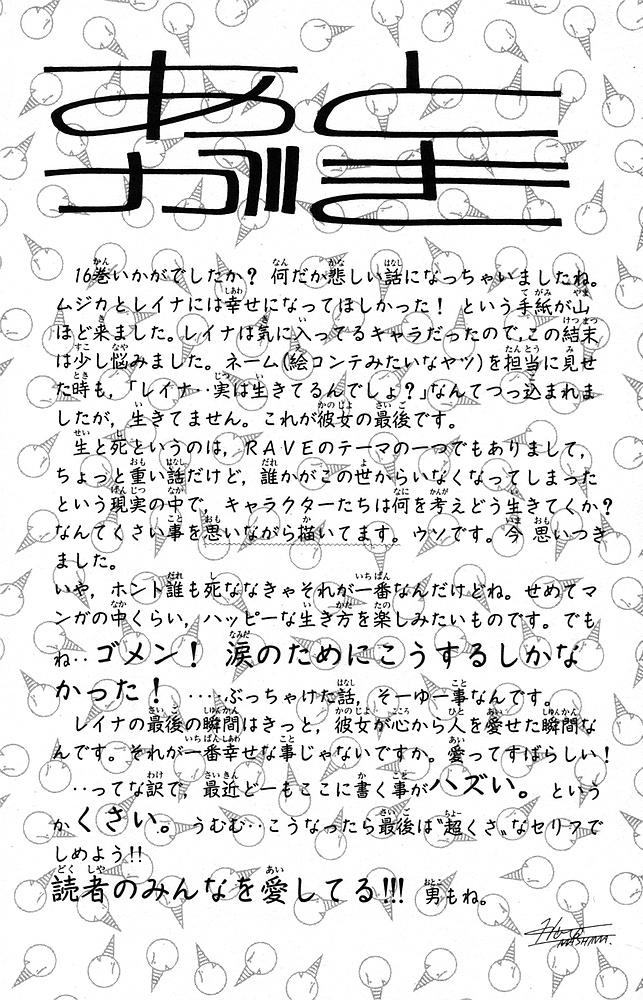 あとがき
16巻いかがでしたか? 何だか悲しい話になっちゃいましたね。
ムジカとレイナには幸せになってほしかった! という手紙が山
ほど来ました。レイナは気に入ってるキャラだったので,この結末
は少し悩みました。ネーム(絵コンテみたいなヤツ)を担当に見せ
た時も,「レイナ‥実は生きてるんでしょ?」なんてつっ込まれま
したが,生きてません。これが彼女の最後です。
生と死というのは,RAVEのテーマの一つでもありまして,
ちょっと重い話だけど,誰かがこの世からいなくなってしまった
という現実の中で,キャラクターたちは何を考えどう生きてくか?
なんてくさい事を思いながら描いてます。ウソです。今 思いつき
ました。
いや,ホント誰も死ななきゃそれが一番なんだけどね。せめてマ
ンガの中くらい,ハッピーな生き方を楽しみたいものです。でも
ね‥ゴメン! 涙のためにこうするしかな
かった! ……ぶっちゃけた話,そーゆー事なんです。
レイナの最後の瞬間はきっと,彼女が心から人を愛せた瞬間な
んです。それが一番幸せな事じゃないですか。愛ってすばらしい!
‥ってな訳で,最近どーもここに書く事がハズい。という
かくさい。うむむ‥こうなったら最後は"超くさ"なセリフで
しめよう!!
読者のみんなを愛してる!!! 男もね。
Hiro
MASHIMA.